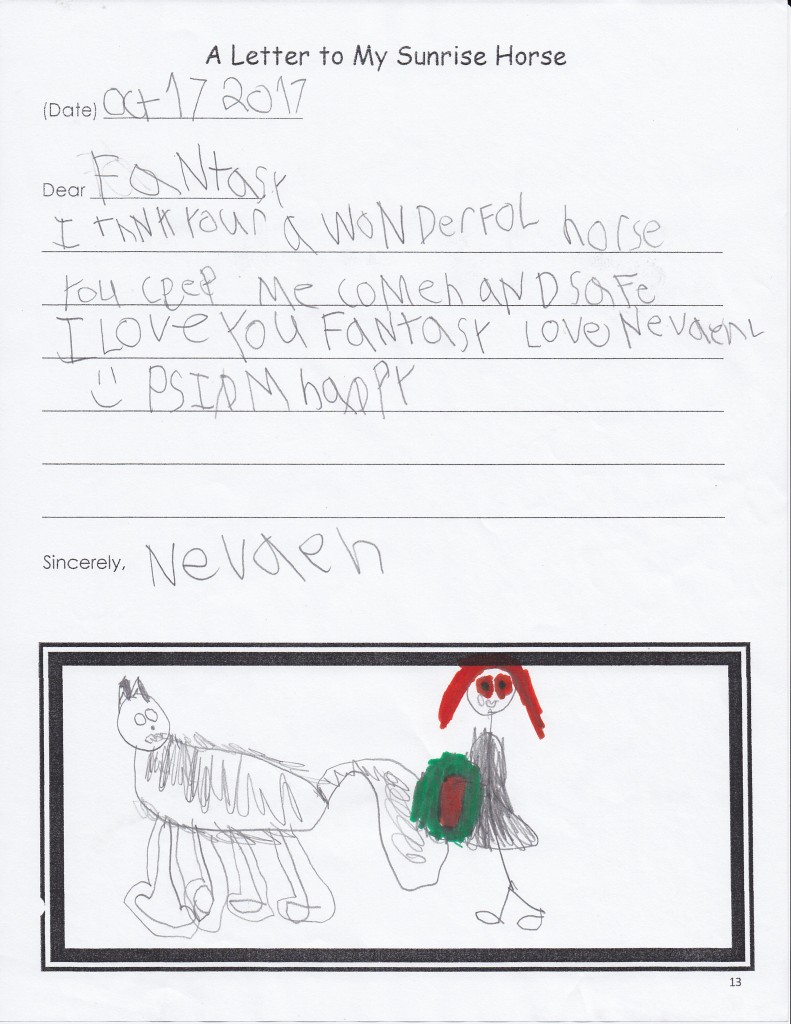 A Letter to My Sunrise Horse
(Date) Oct 17 2017
Dear FaNtasy
I thNk your a WONDerFOL horse
You ceep Me comeh aND saFe
I LOVe You FaNtasy Love Nevaeh
☺ PS I aM happy
Sincerely, Nevaeh
13